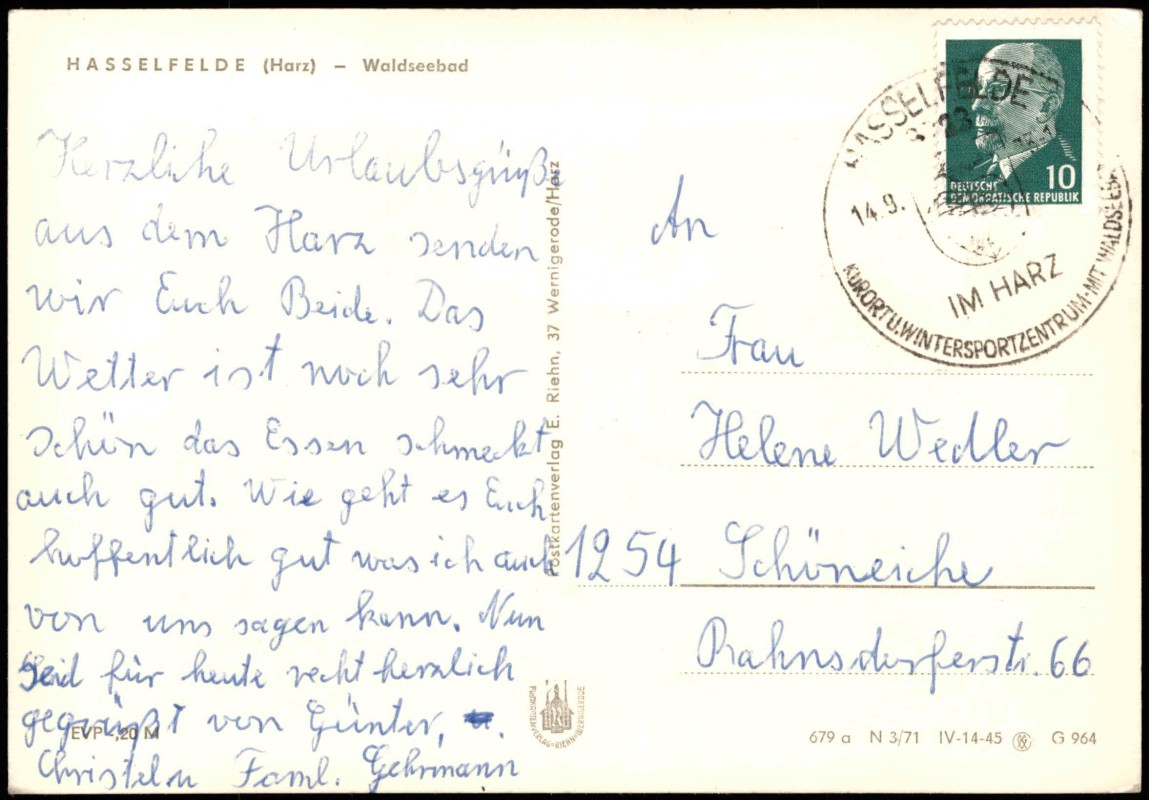 HASSELFELDE (Harz) – Waldseebad
Herzlihe Urlaubsgüße
aus dem Harz senden
wir Euch Beide. Das
Wetter ist noch sehr
schön das Essen schmeckt
auch gut. Wie geht es Euch
hoffentlich gut was ich auch
von uns sagen kann. Nun
Seid für heute recht herzlich
gegrüßt von Günter,
Christel u Faml. Gehrmann
EVP -,20 M
Postkartenverlag E. Riehn, 37 Wernigerode/Harz
POSTKARTENVERLAG-RIEHN-WERNIGERODE
DEUTSCHE
DEMOKRATISCHE REPUBLIK
10
HASSELFELDE
14.9.
IM HARZ
KURORT U. WINTERSPORTZENTRUM-MIT WALDSEEB
An
Frau
Helene Wedler
1254 Schöneiche
Rahnsdorferstr. 66
679 a N 3/71 IV-14-45 G 964